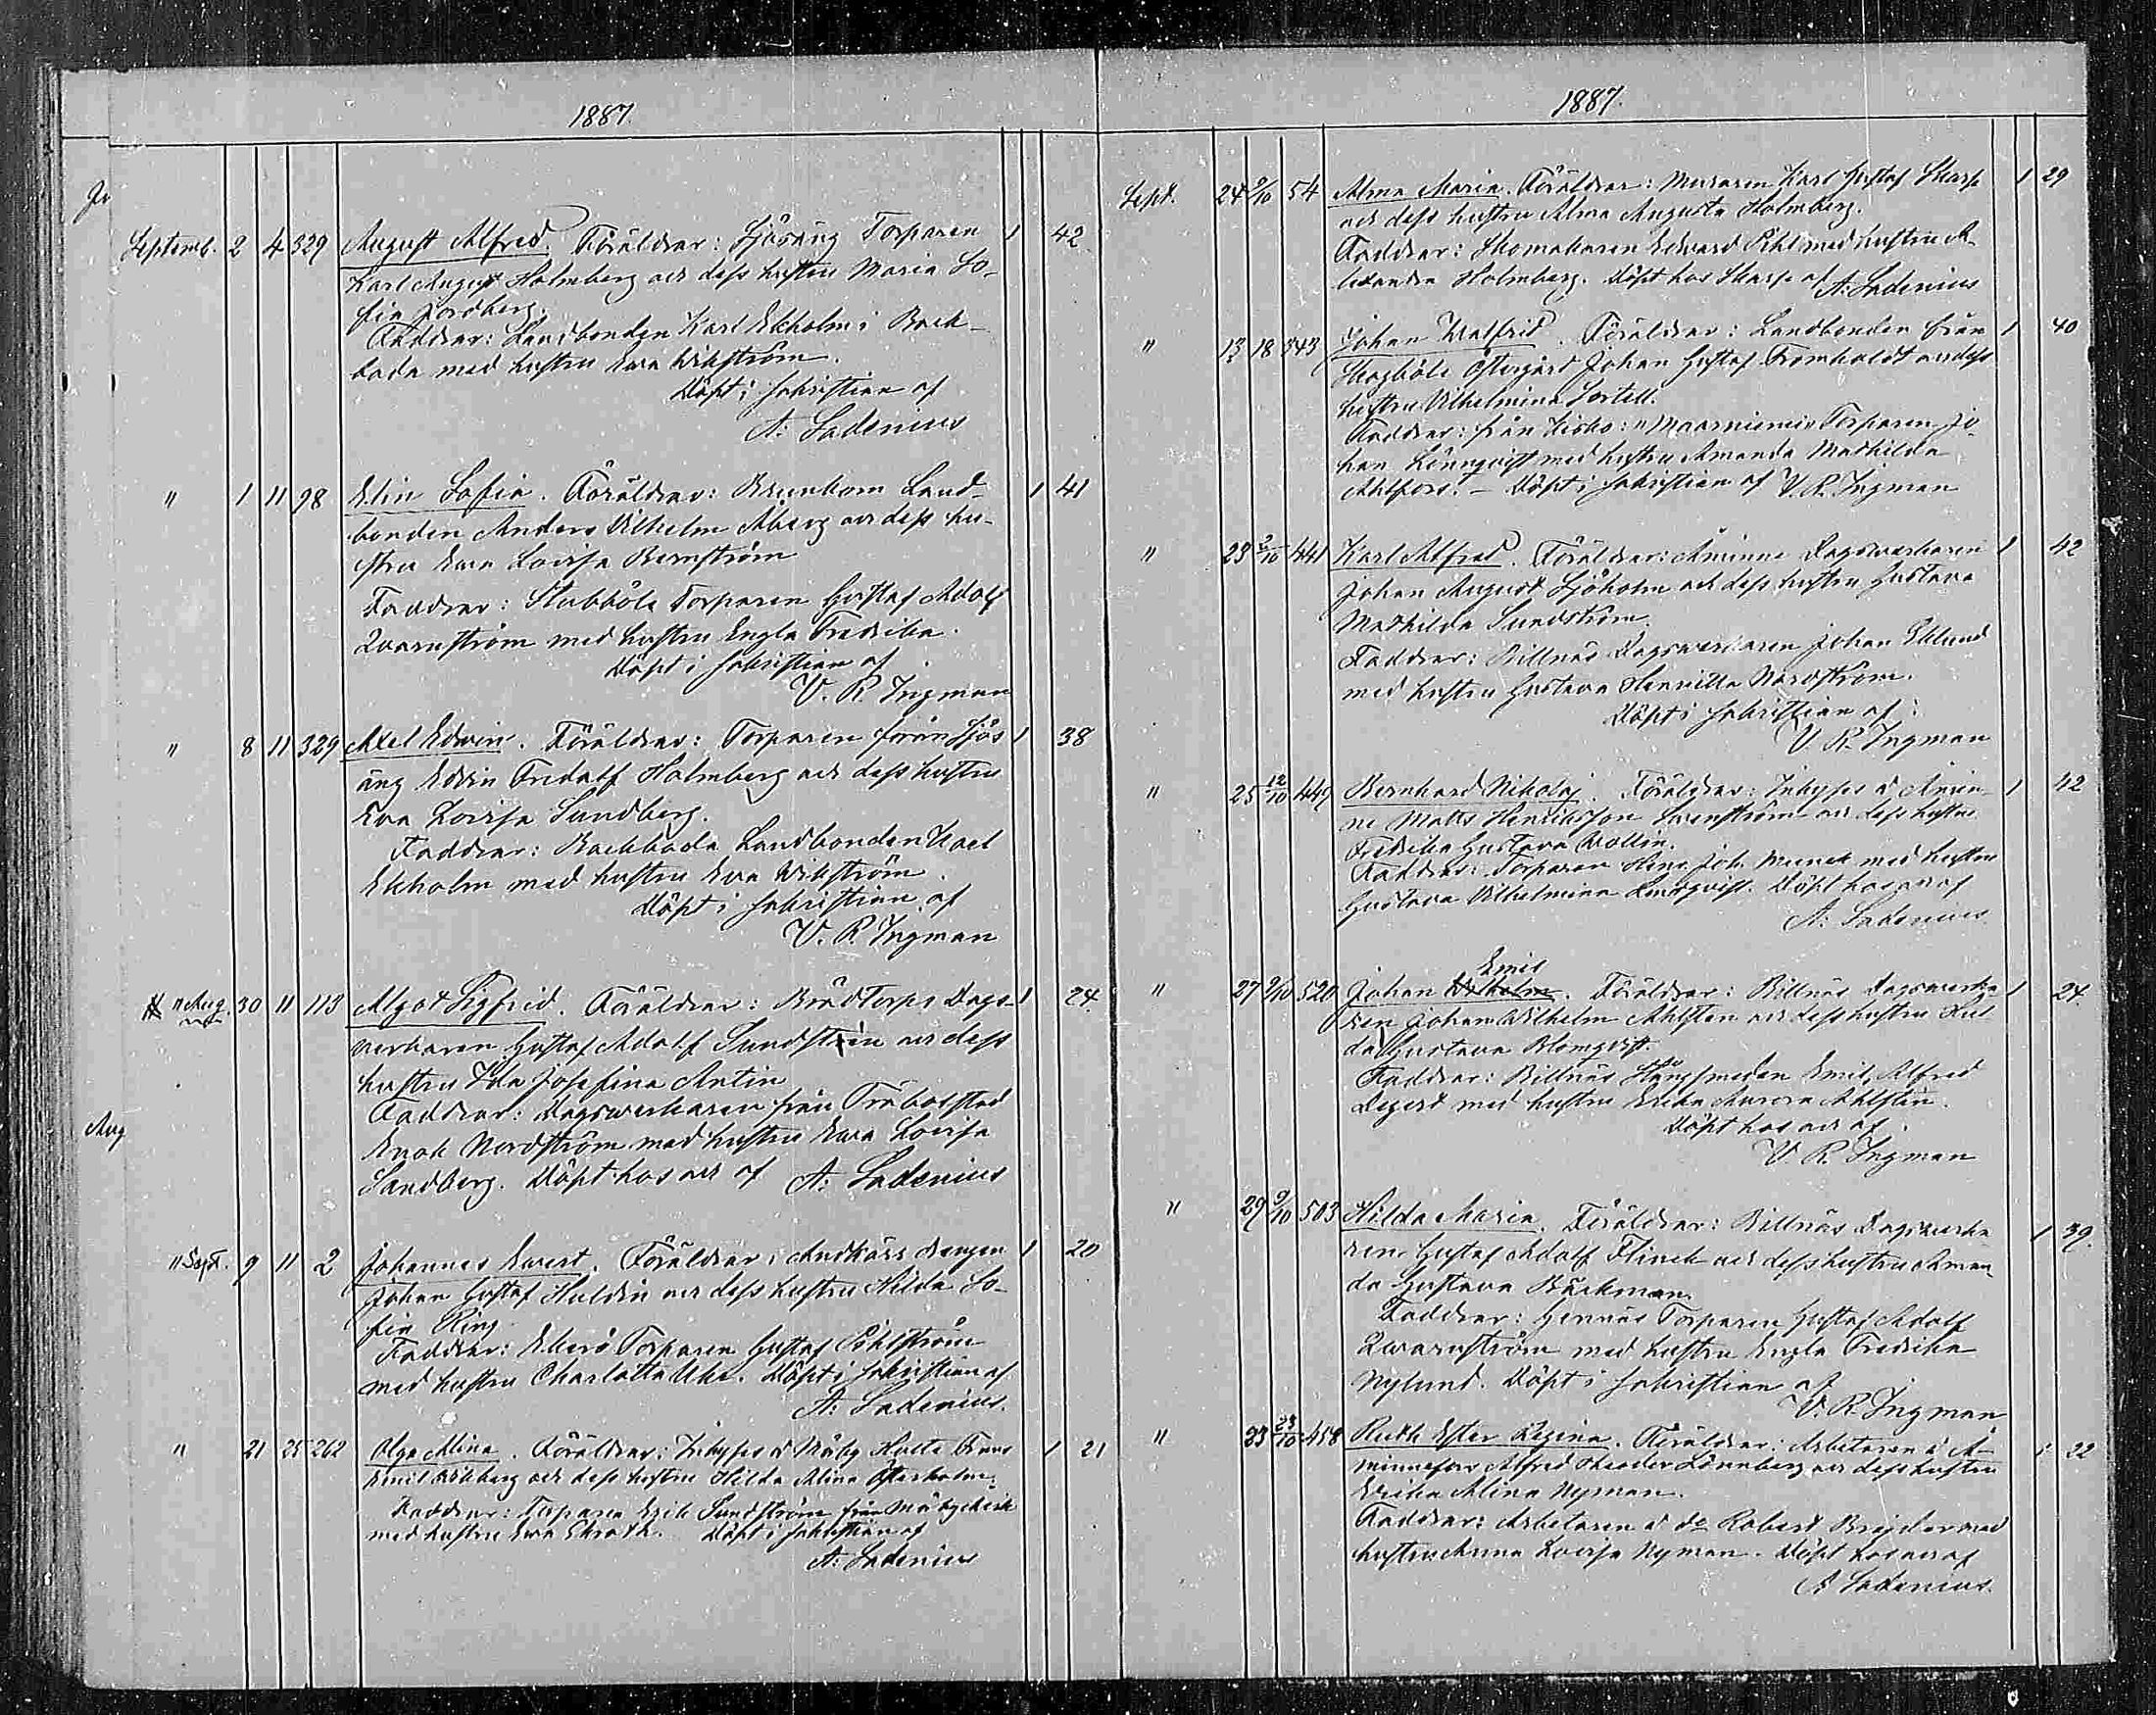 1887.
Septemb. 2 4 329 August Alfred. Föräldrar: Sjösäng Torparen 1 42
Karl August Holmberg och dess hustru Maria So-
fia Jordberg.
Faddrar: Landbonden Karl Ekholm i Back-
boda med hustru Eva Wikström.
Döpt i sakristian af
A: Ladenius
" 1 11 98 Elin Sofia. Föräldrar: Brunkom Land- 1 41
bonden Anders Vilhelm Åberg och dess hu-
stru Eva Lovisa Bernström
Faddrar: Stubböle Torparen Gustaf Adolf
Qvarnström med hustru Engla Fredrika.
Döpt i sakristian af
V. R. Ingman
" 8 11 329 Axel Edvin. Föräldrar: Torparen från Sjös 1 38
äng Edvin Fridolf Holmberg och dess hustru
Eva Lovisa Sandberg.
Faddrar: Backboda Landbonden Karl
Ekholm med hustru Eva Wikström.
Döpt i sakristian af
V. R. Ingman
" Aug. 30 11 113 Algot Sigfrid. Föräldrar: Brödtorps Dags- 1 24.
verkaren Gustaf Adolf Sundstén och dess
hustru Ida Josefina Antin
Faddrar: Dagsverkaren från Träbolstad
Enok Nordström med hustru Eva Lovisa
Sandberg. Döpt hos och af A: Ladenius
" Sept. 9 11 2 Johannes Evert. Föräldrar: Andkärr drengen 1 20
Johan Gustaf Huldin och dess hustru Hilda So-
fia Ring
Faddrar: Ekerö Torparen Gustaf Pihlström
med hustru Charlotta Uhr. Döpt i sakristian af
A: Ladenius.
" 21 25 262 Olga Alina. Föräldrar: Inhyses å Näsby Frans 1 21
Emil och dess hustru Hilda Alina Österholm.
Faddrar: Torparen Erik Sundström från
med hustru Eva Ekroth. Döpt i sakristian af
A: Ladenius
1887.
Sept. 24 9/10 54 Alma Maria. Föräldrar: Muraren Karl Gustaf Skarp 1 29
och dess hustru Alma Augusta Holmberg.
Faddrar: Skomakaren Edvard Pihl med hustru A-
lexandra Holmberg. Döpt hos Skarp af A: Ladenius
" 13 18 343 Johan Walfrid. Föräldrar: Landbonden från 1 40
Skogböle Östergård Johan Gustaf Fromholdt och dess
hustru Vilhelmina Sortell.
Faddrar: från Kisko: "Maarniemi" Torparen Jo-
han Lönnqvist med hustru Amanda Mathilda
Ahlfors. – Döpt i sakristian af V. R. Ingman
" 23 2/10 441 Karl Alfred. Föräldrar: Åminne Dagsverkaren 1 42
Johan August Sjöholm och dess hustru Gustava
Mathilda Sundström.
Faddrar: Billnäs Dagsverkaren Johan Eklund
med hustru Gustava Henrika Nordström.
Döpt i sakristian af
V. R. Ingman
" 25 12/10 449 Bernhard Nikolaj. Föräldrar: Inhyses å Åmin- 1 42
ne Matts Henriksson Svenström och dess hustru
Fredrika Gustava Wollin.
Faddrar: Torparen Henr. Joh. Munck med hustru
Gustava Vilhelmina Lindqvist. Döpt hos och af
A: Ladenius
Emil
" 27 9/10 520 Johan Wilhelm. Föräldrar: Billnäs Dagsverka- 1 24.
ren Johan Wilhelm Ahlsten och dess hustru Hul
da Gustava Blomqvist.
Faddrar: Billnäs smeden Emil Alfred
Degert med hustru Erika Aurora Ahlstén.
Döpt hos och af
V. R. Ingman
" 29 9/10 503 Hilda Maria. Föräldrar: Billnäs Dagsverka 1 39.
ren Gustaf Adolf Flinck och dess hustru Aman-
da Gustava Bäckman.
Faddrar: Gennäs Torparen Gustaf Adolf
Qvarnström med hustru Engla Fredrika
Nylund. Döpt i sakristian af
V. R. Ingman
" 23 23/10 458 Ruth Ester Regina. Föräldrar: Arbetaren å Å- 1 22
minnefors Alfred Theodor Lönnberg och dess hustru
Erika Alina Nyman.
Faddrar: Arbetaren å do Robert Brejder med
hustru Anna Lovisa Nyman. Döpt hos och af
A Ladenius.